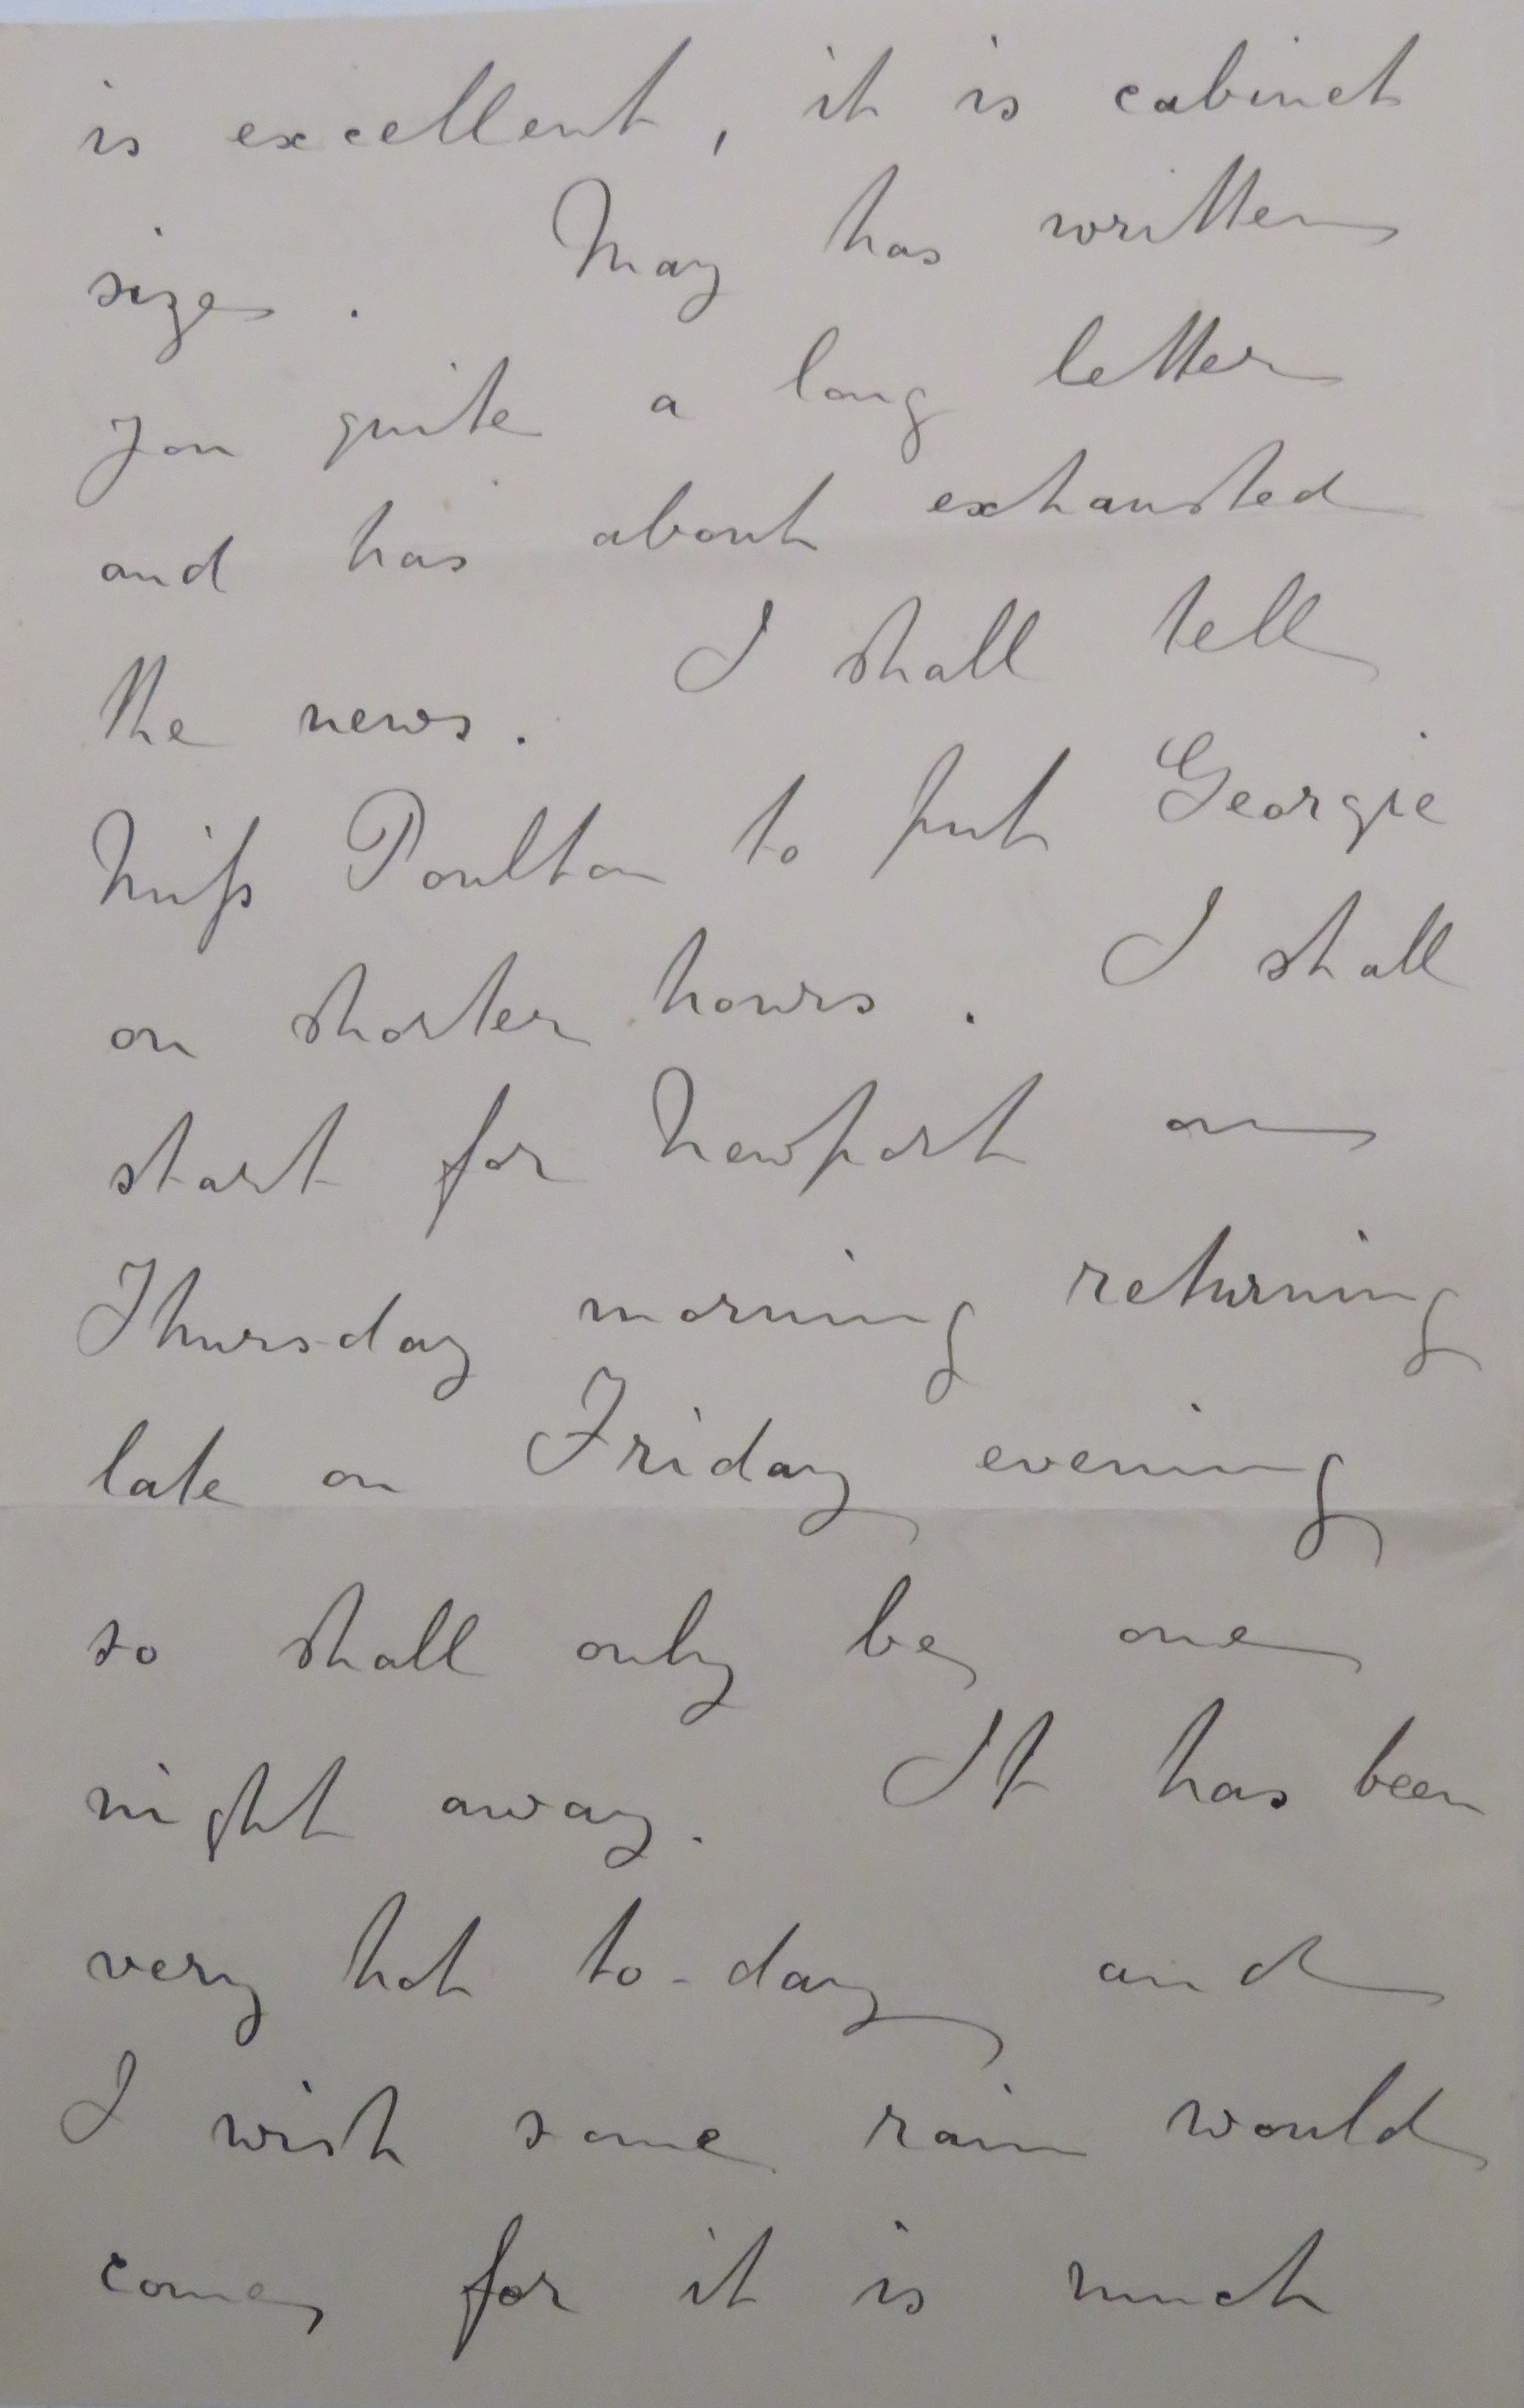 is excellent, it is cabinet
size. May has written
you quite a long letter
and has about exhausted
the news. I shall tell
Miſs Poulton to put Georgie
on shorter hours. I shall
start for Newport on
Thursday morning returning
late on Friday evening
so shall only be one
night away. It has been
very hot to-day and
I wish some rain would
come, for it is much